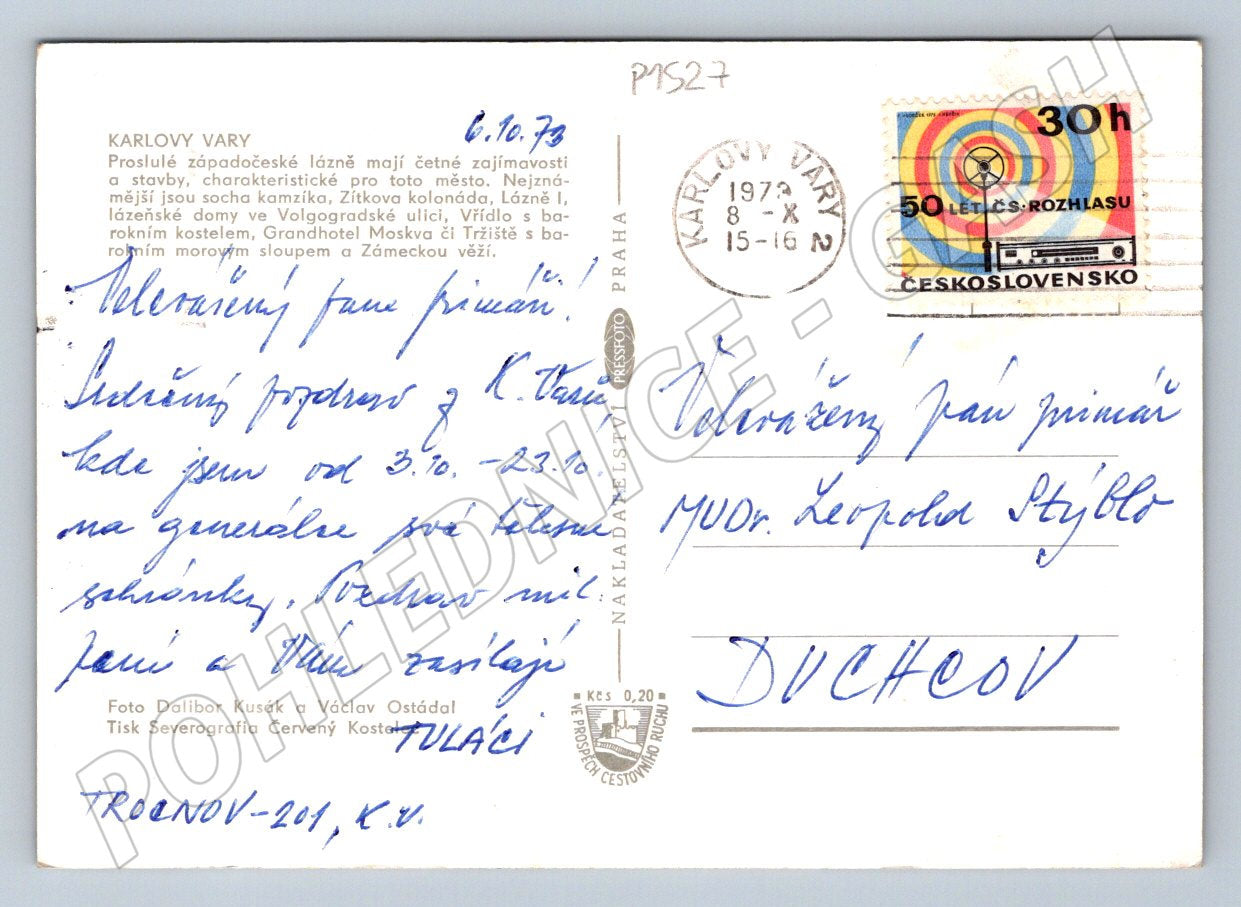 P1527
6.10.73
KARLOVY VARY
Proslulé západočeské lázně mají četné zajímavosti
a stavby, charakteristické pro toto město. Nejzná-
mější jsou socha kamzíka, Zítkova kolonáda, Lázně I,
lázeňské domy ve Volgogradské ulici, Vřídlo s ba-
rokním kostelem, Grandhotel Moskva či Tržiště s ba-
rokním morovým sloupem a Zámeckou věží.
Velevážený pane primáři!
Srdečný pozdrav z K. Varů
kde jsem od 3.10. - 23.10.
na generálce své tělesné
schránky. Pozdrav mil.
paní a Vám zasílají
TULÁCI
TROCNOV-201, K.V.
Foto Dalibor Kusák a Václav Ostádal
Tisk Severografia Červený Kostelec
NAKLADATELSTVÍ PRESSFOTO PRAHA
Kčs 0,20
VE PROSPĚCH CESTOVNÍHO RUCHU
KARLOVY VARY 2
1973
8 -X
15-16
30h
50 LET ČS. ROZHLASU
ČESKOSLOVENSKO
Velevážený pán primář
MUDr. Leopold Stýblo
DUCHCOV
POHLEDNICE - ČÍŠCH